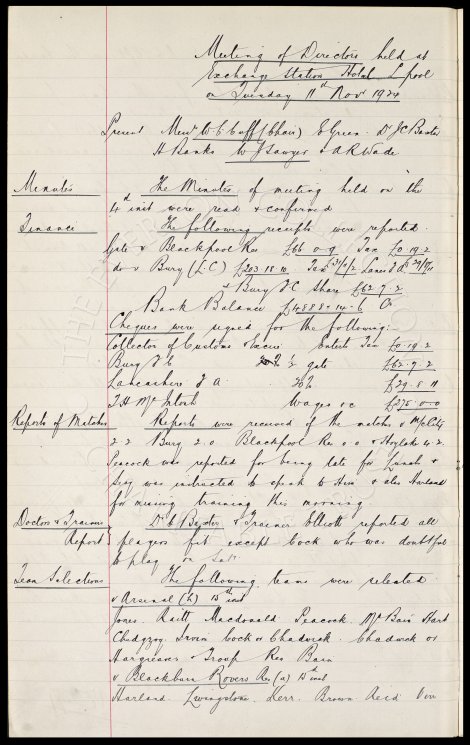 Meeting of Directors held at
Exchange Station Hotel L'pool
on Tuesday 11th Nov 1924
Present Messrs W.C. Cuff (Chair) E Green. Dr J C Baxter
H Banks W J Sawyer & A R Wade
Minutes The Minutes of meeting held on the
4th inst were read & confirmed
Finance The following receipts were reported.
Gate v Blackpool Res £66.0.9 Tax £0.19.2
do v Bury (L.C) £203.18.10 Tax
& Bury F C Share £62.9.2
Bank Balance £4888-14-6 Cr
Cheques were signed for the following:
Collector of Customs & Excise Enterts Tax £0.19.2
Bury F C ½ gate £62.9.2
Lancashire F A £29.8.11
T. H. McIntosh Wages &c £275.0.0
Reports of Matches Reports were received of the matches v M/c City
2.2 Bury 2.0 Blackpool Res 0.0 v Hoylake 4.2.
Peacock was reported for being late for Lunch &
Secy was instructed to speak to Him & also Harland
for missing training this morning.
Doctors & Trainers Dr C Baxter & Trainer Elliott reported all
Report players fit except Cock who was doubtful
to play on Sat.
Team Selections The following teams were selected
v Arsenal (h) 15th inst
Jones. Raitt, Macdonald Peacock. McBain Hart
Chedgzoy. Irvin Cock or Chadwick. Chadwick or
Hargreaves & Troup Res Bain
v Blackburn Rovers Res (a) 15th inst
Harland Livingstone. Kerr. Brown Reid